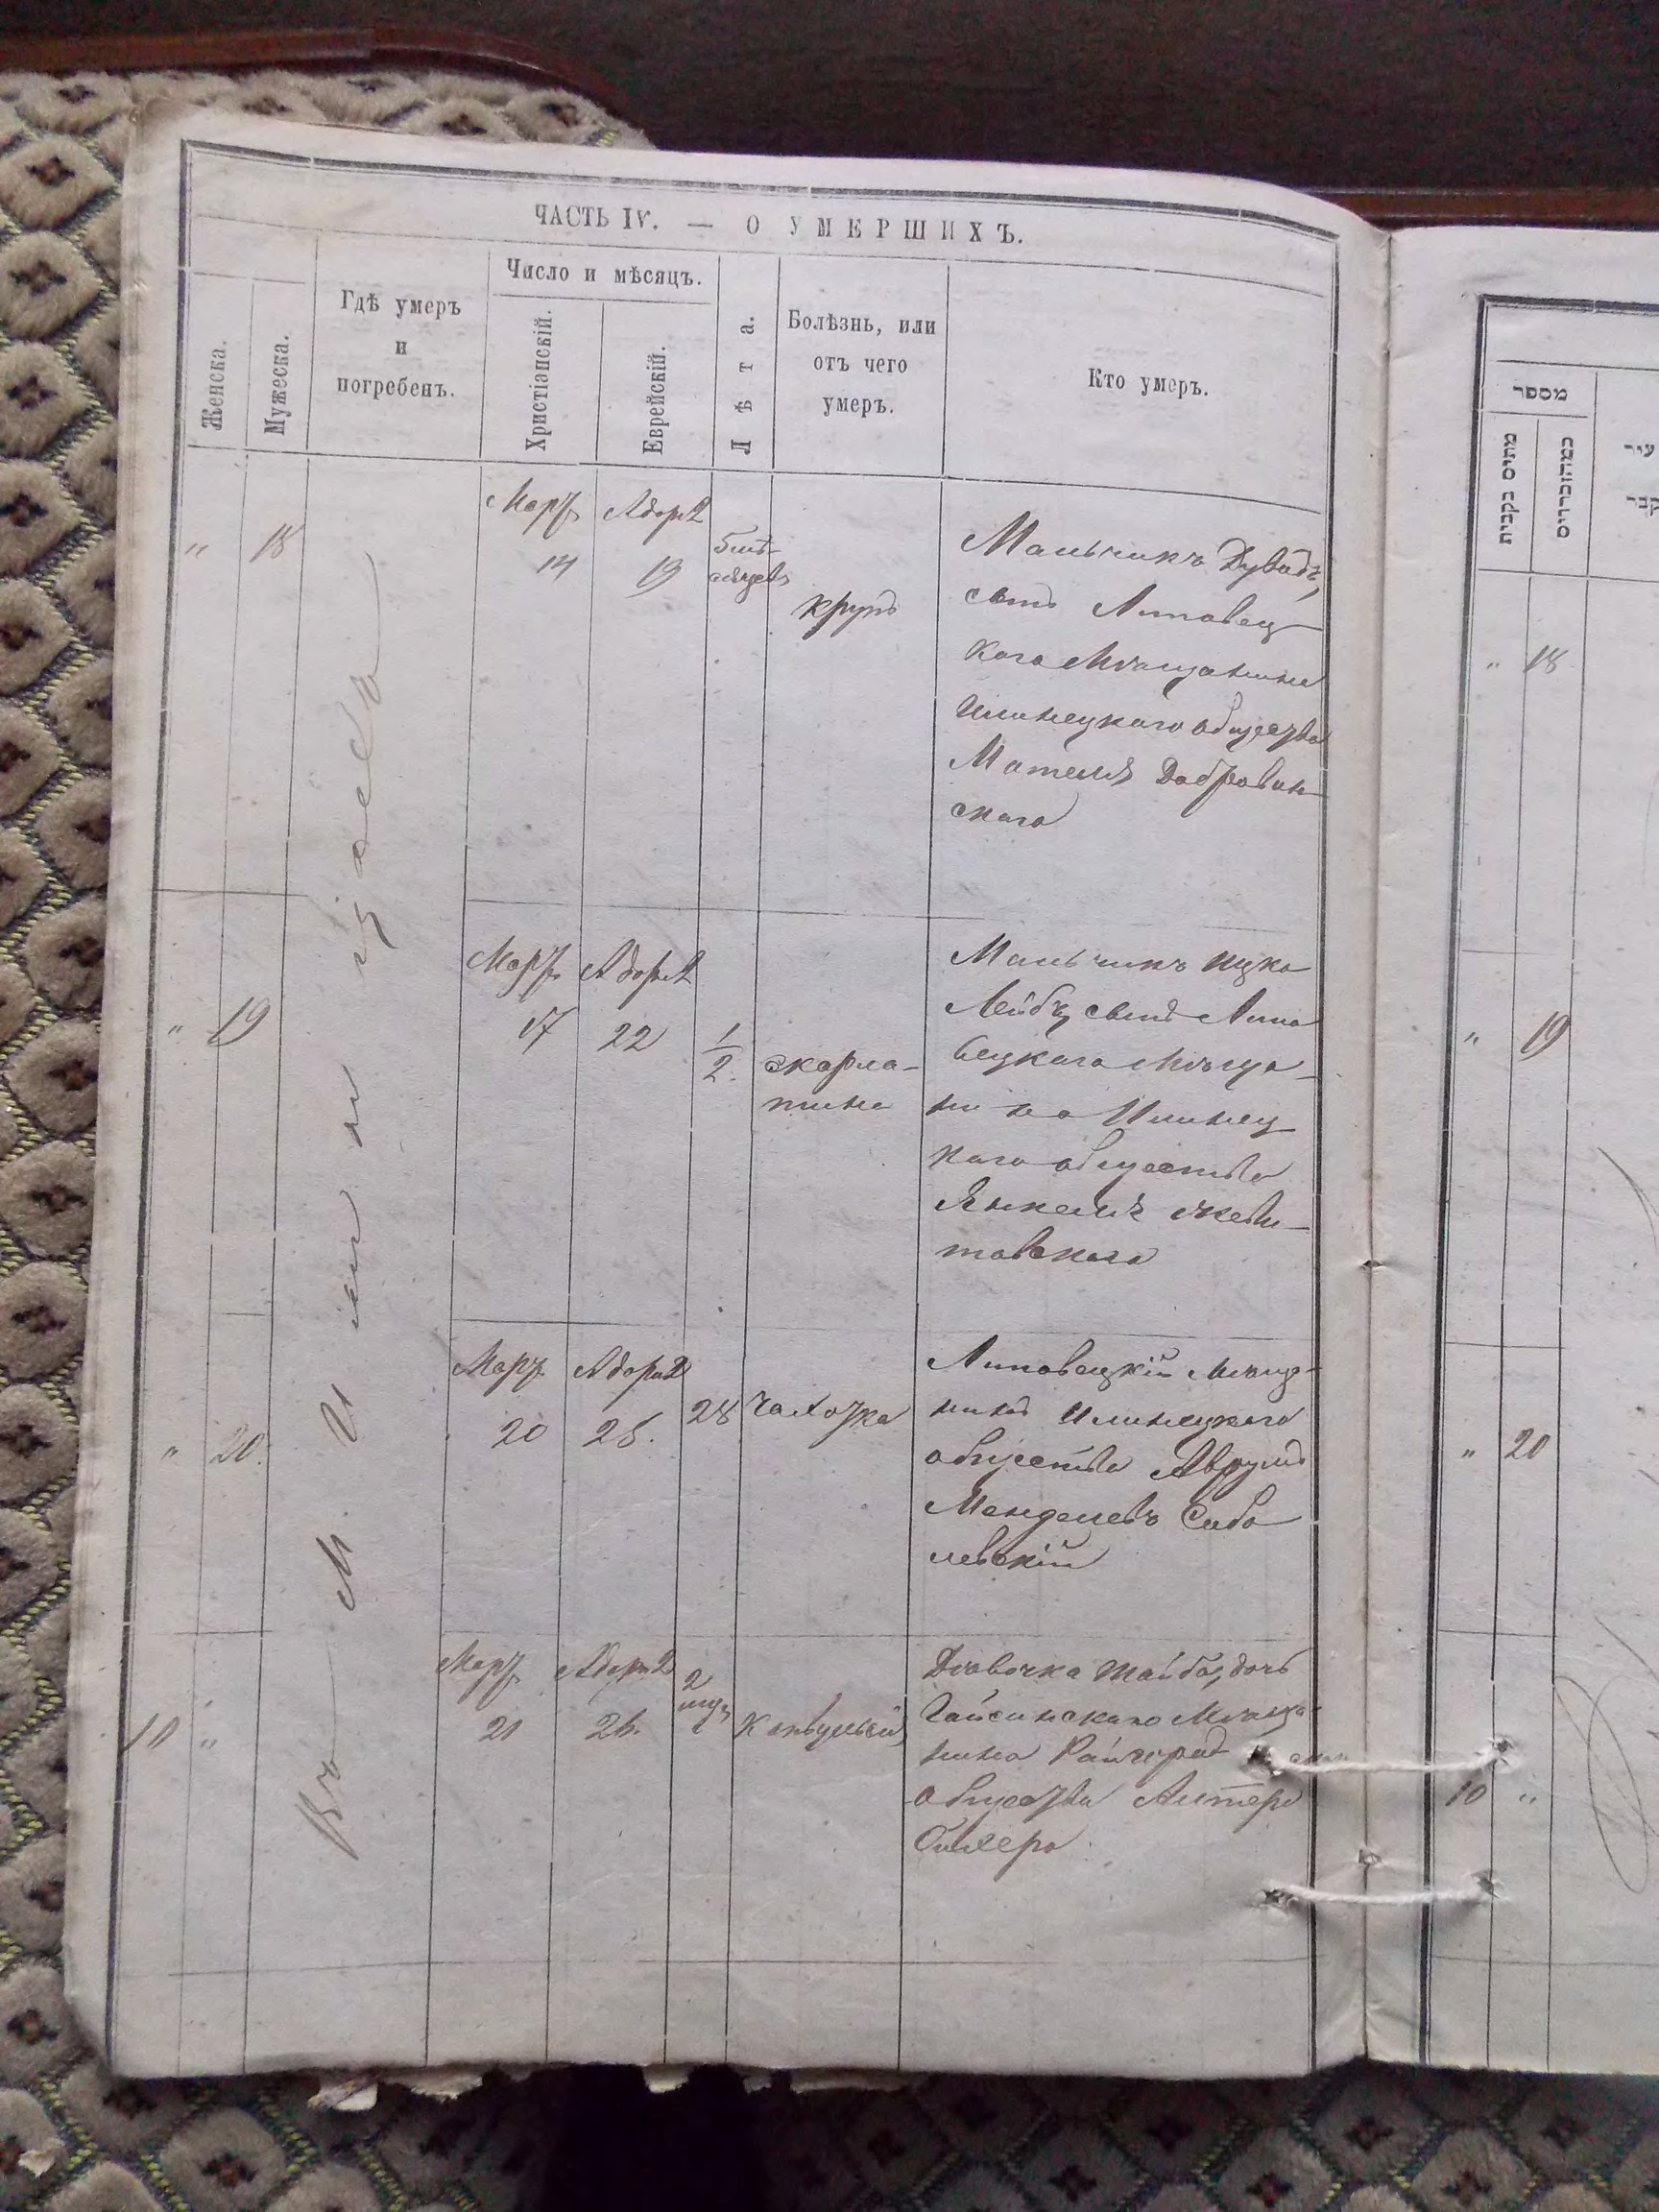 ЧАСТЬ IV. — О УМЕРШИХЪ.
Женска.
Мужеска.
Гдѣ умеръ
и
погребенъ.
Число и мѣсяцъ.
Христіанскій.
Еврейскій.
Лѣта.
Болѣзнь, или
отъ чего
умеръ.
Кто умеръ.
Въ М. Илинцахъ
" 18
Март
14
Адара 2
19
крупъ
Мальчикъ Дувидъ,
сынъ Липовец
каго Мѣщанина
Илинецкаго общества
Мотеля Добровин
скаго
" 19
Март
17
Адара 2
22
1/2
скарла-
тина
Мальчикъ Ицко
Лейбъ, сынъ Липо
вецкаго Мѣща-
нина Илинец
каго общества
Янкеля
товскаго
" 20.
Март
20
Адара 2
25.
28
чахотка
Липовецкій Мѣща-
нинъ Илинецкаго
общества Аврумъ
Менделевъ Собо
левскій
10 "
Март
21
Адара 2
26.
2
Дѣвочка Тайба, дочь
Гайсинскаго Мѣща-
нина Райгород
общества Алтера
מספר
מתים נקבות
" 18
" 19
" 20
10 "